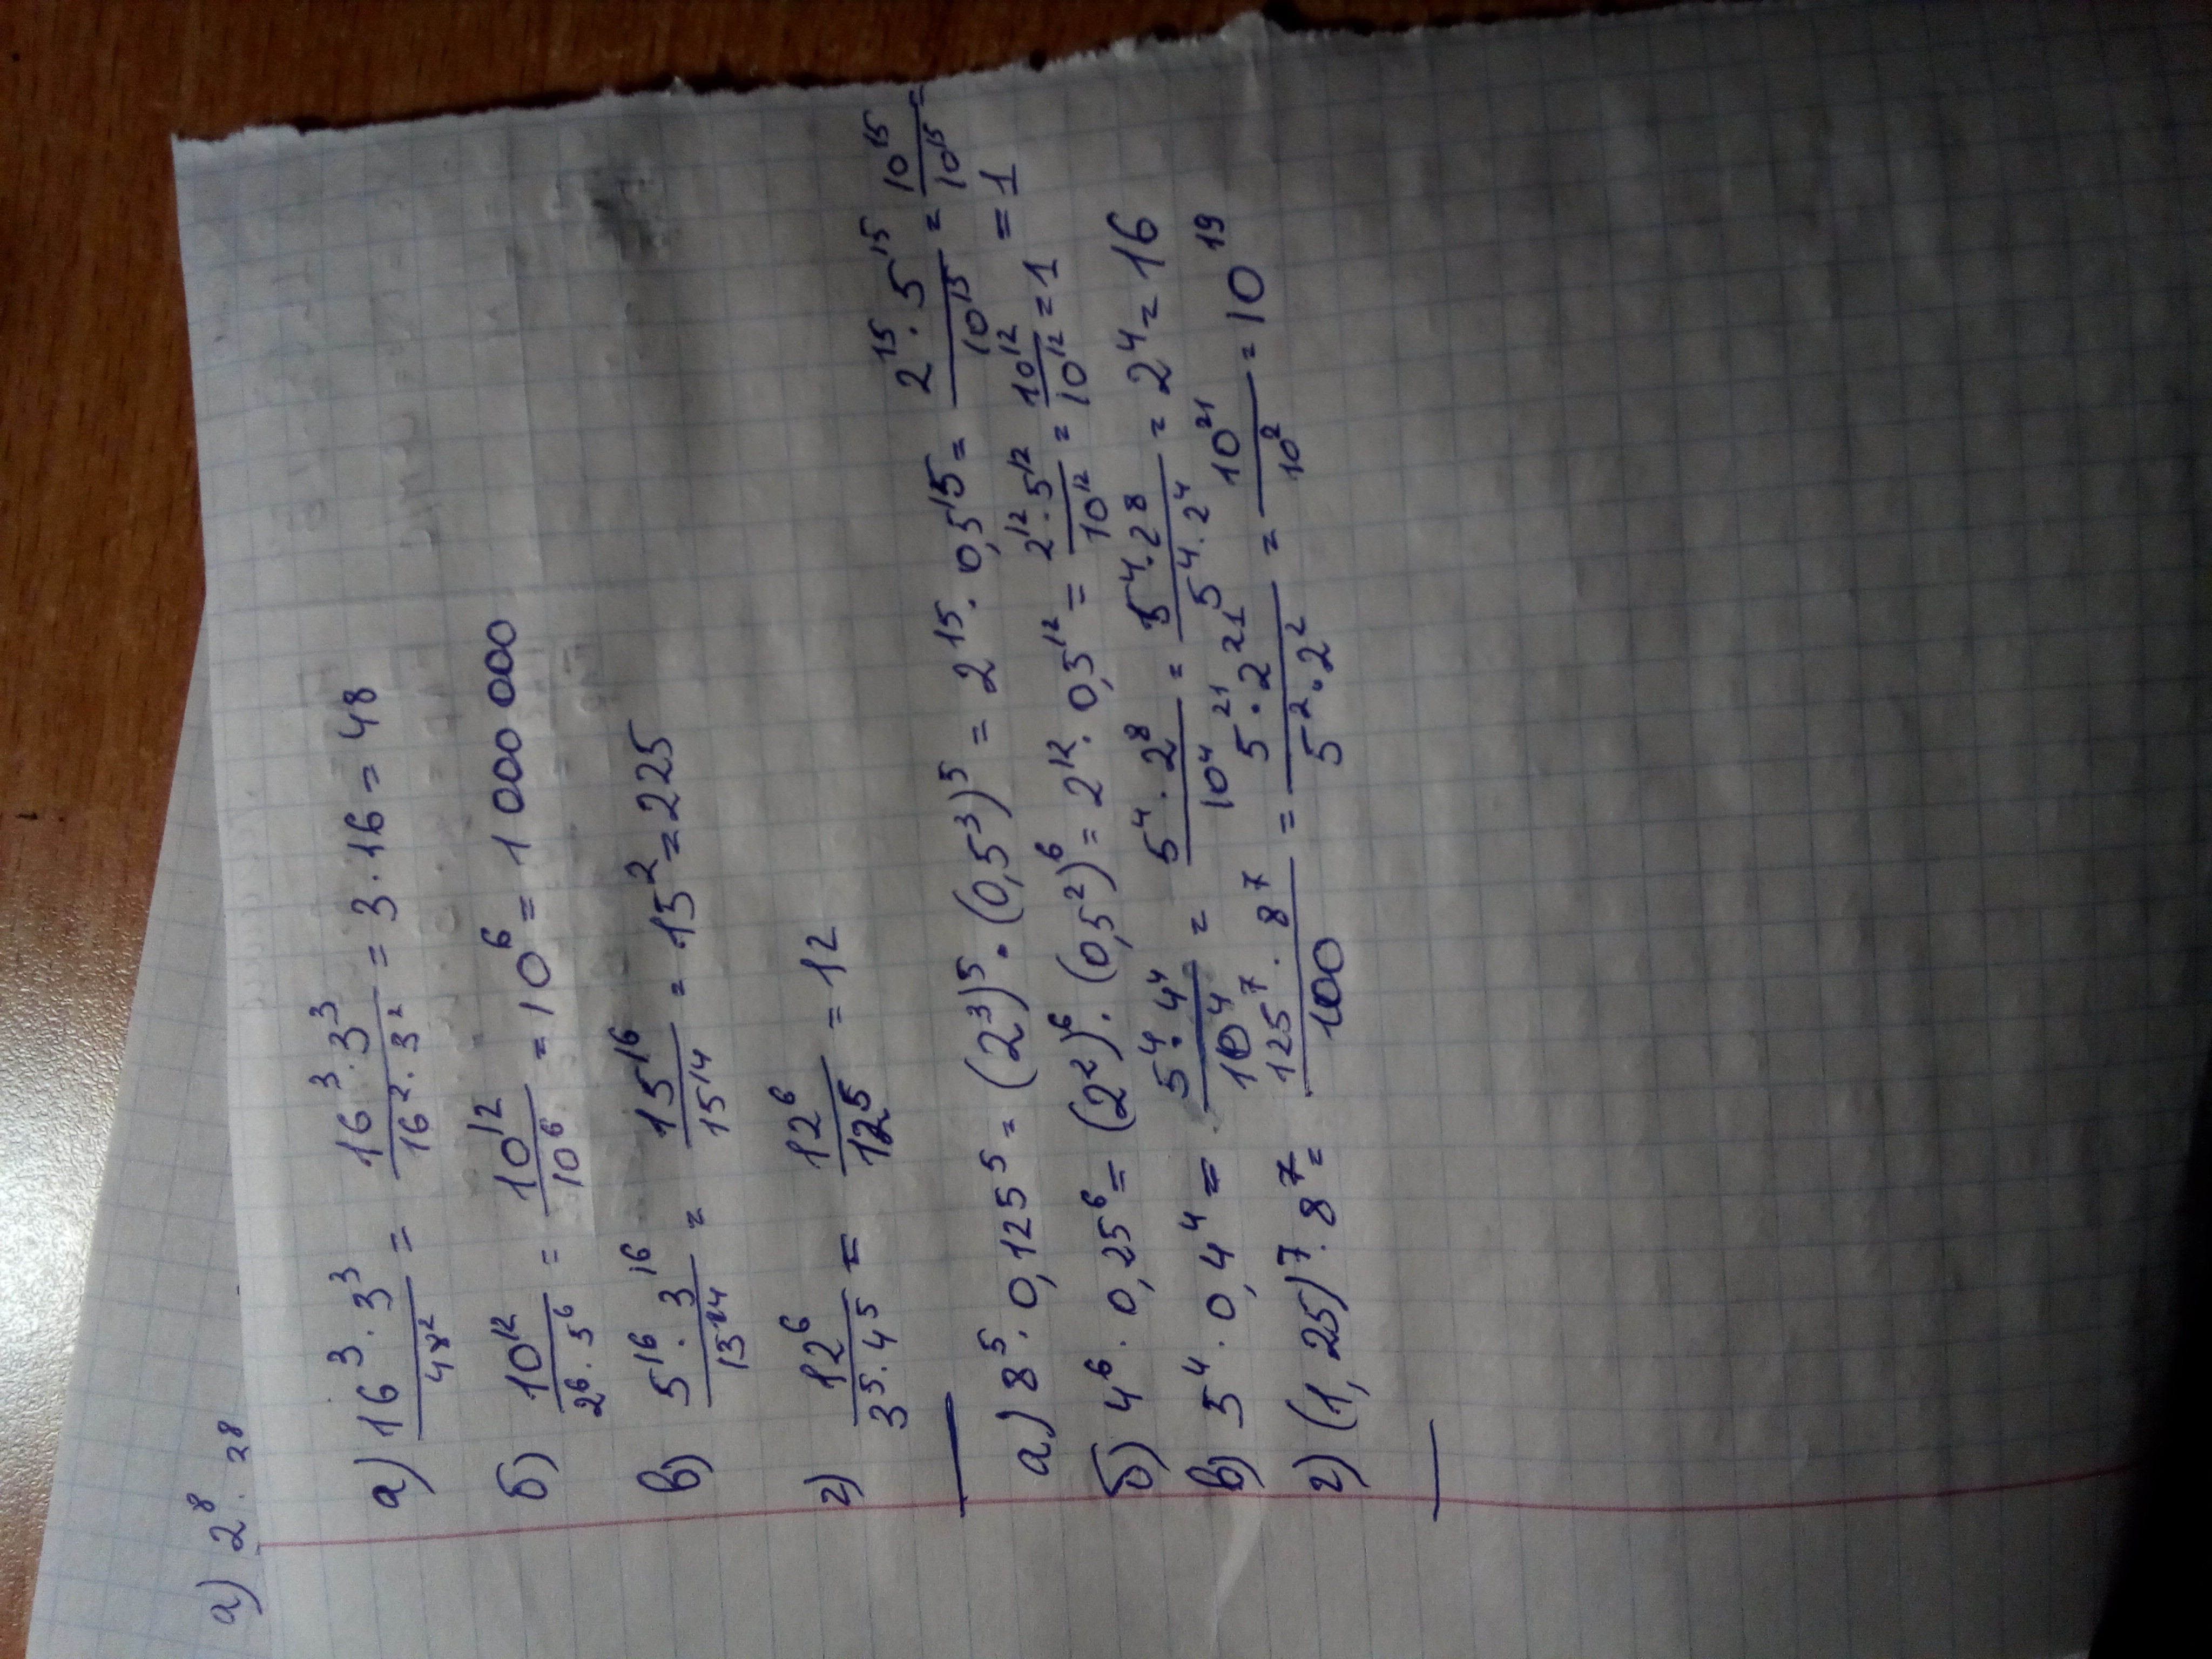 а) 2⁸ · 2⁸
а) 16³ · 3³ / 48² = 16³ · 3³ / 16² · 3² = 3 · 16 = 48
б) 10¹² / 2⁶ · 5⁶ = 10¹² / 10⁶ = 10⁶ = 1 000 000
в) 5¹⁶ · 3¹⁶ / 15¹⁴ = 15¹⁶ / 15¹⁴ = 15² = 225
г) 12⁶ / 3⁵ · 4⁵ = 12⁶ / 12⁵ = 12
а) 8⁵ · 0,125⁵ = (2³)⁵ · (0,5³)⁵ = 2¹⁵ · 0,5¹⁵ = 2¹⁵ · 5¹⁵ / 10¹⁵ = 10¹⁵ / 10¹⁵ =
= 1
б) 4⁶ · 0,25⁶ = (2²)⁶ · (0,5²)⁶ = 2¹² · 0,5¹² = 2¹² · 5¹² / 10¹² = 10¹² / 10¹² = 1
в) 5⁴ · 0,4⁴ = 5⁴ · 4⁴ / 10⁴ = 5⁴ · 2⁸ / 10⁴ = 5⁴ · 2⁸ / 5⁴ · 2⁴ = 2⁴ = 16
г) (1,25)⁷ · 8⁷ = 125⁷ · 8⁷ / 100 = 5²¹ · 2²¹ / 5² · 2² = 10²¹ / 10² = 10¹⁹